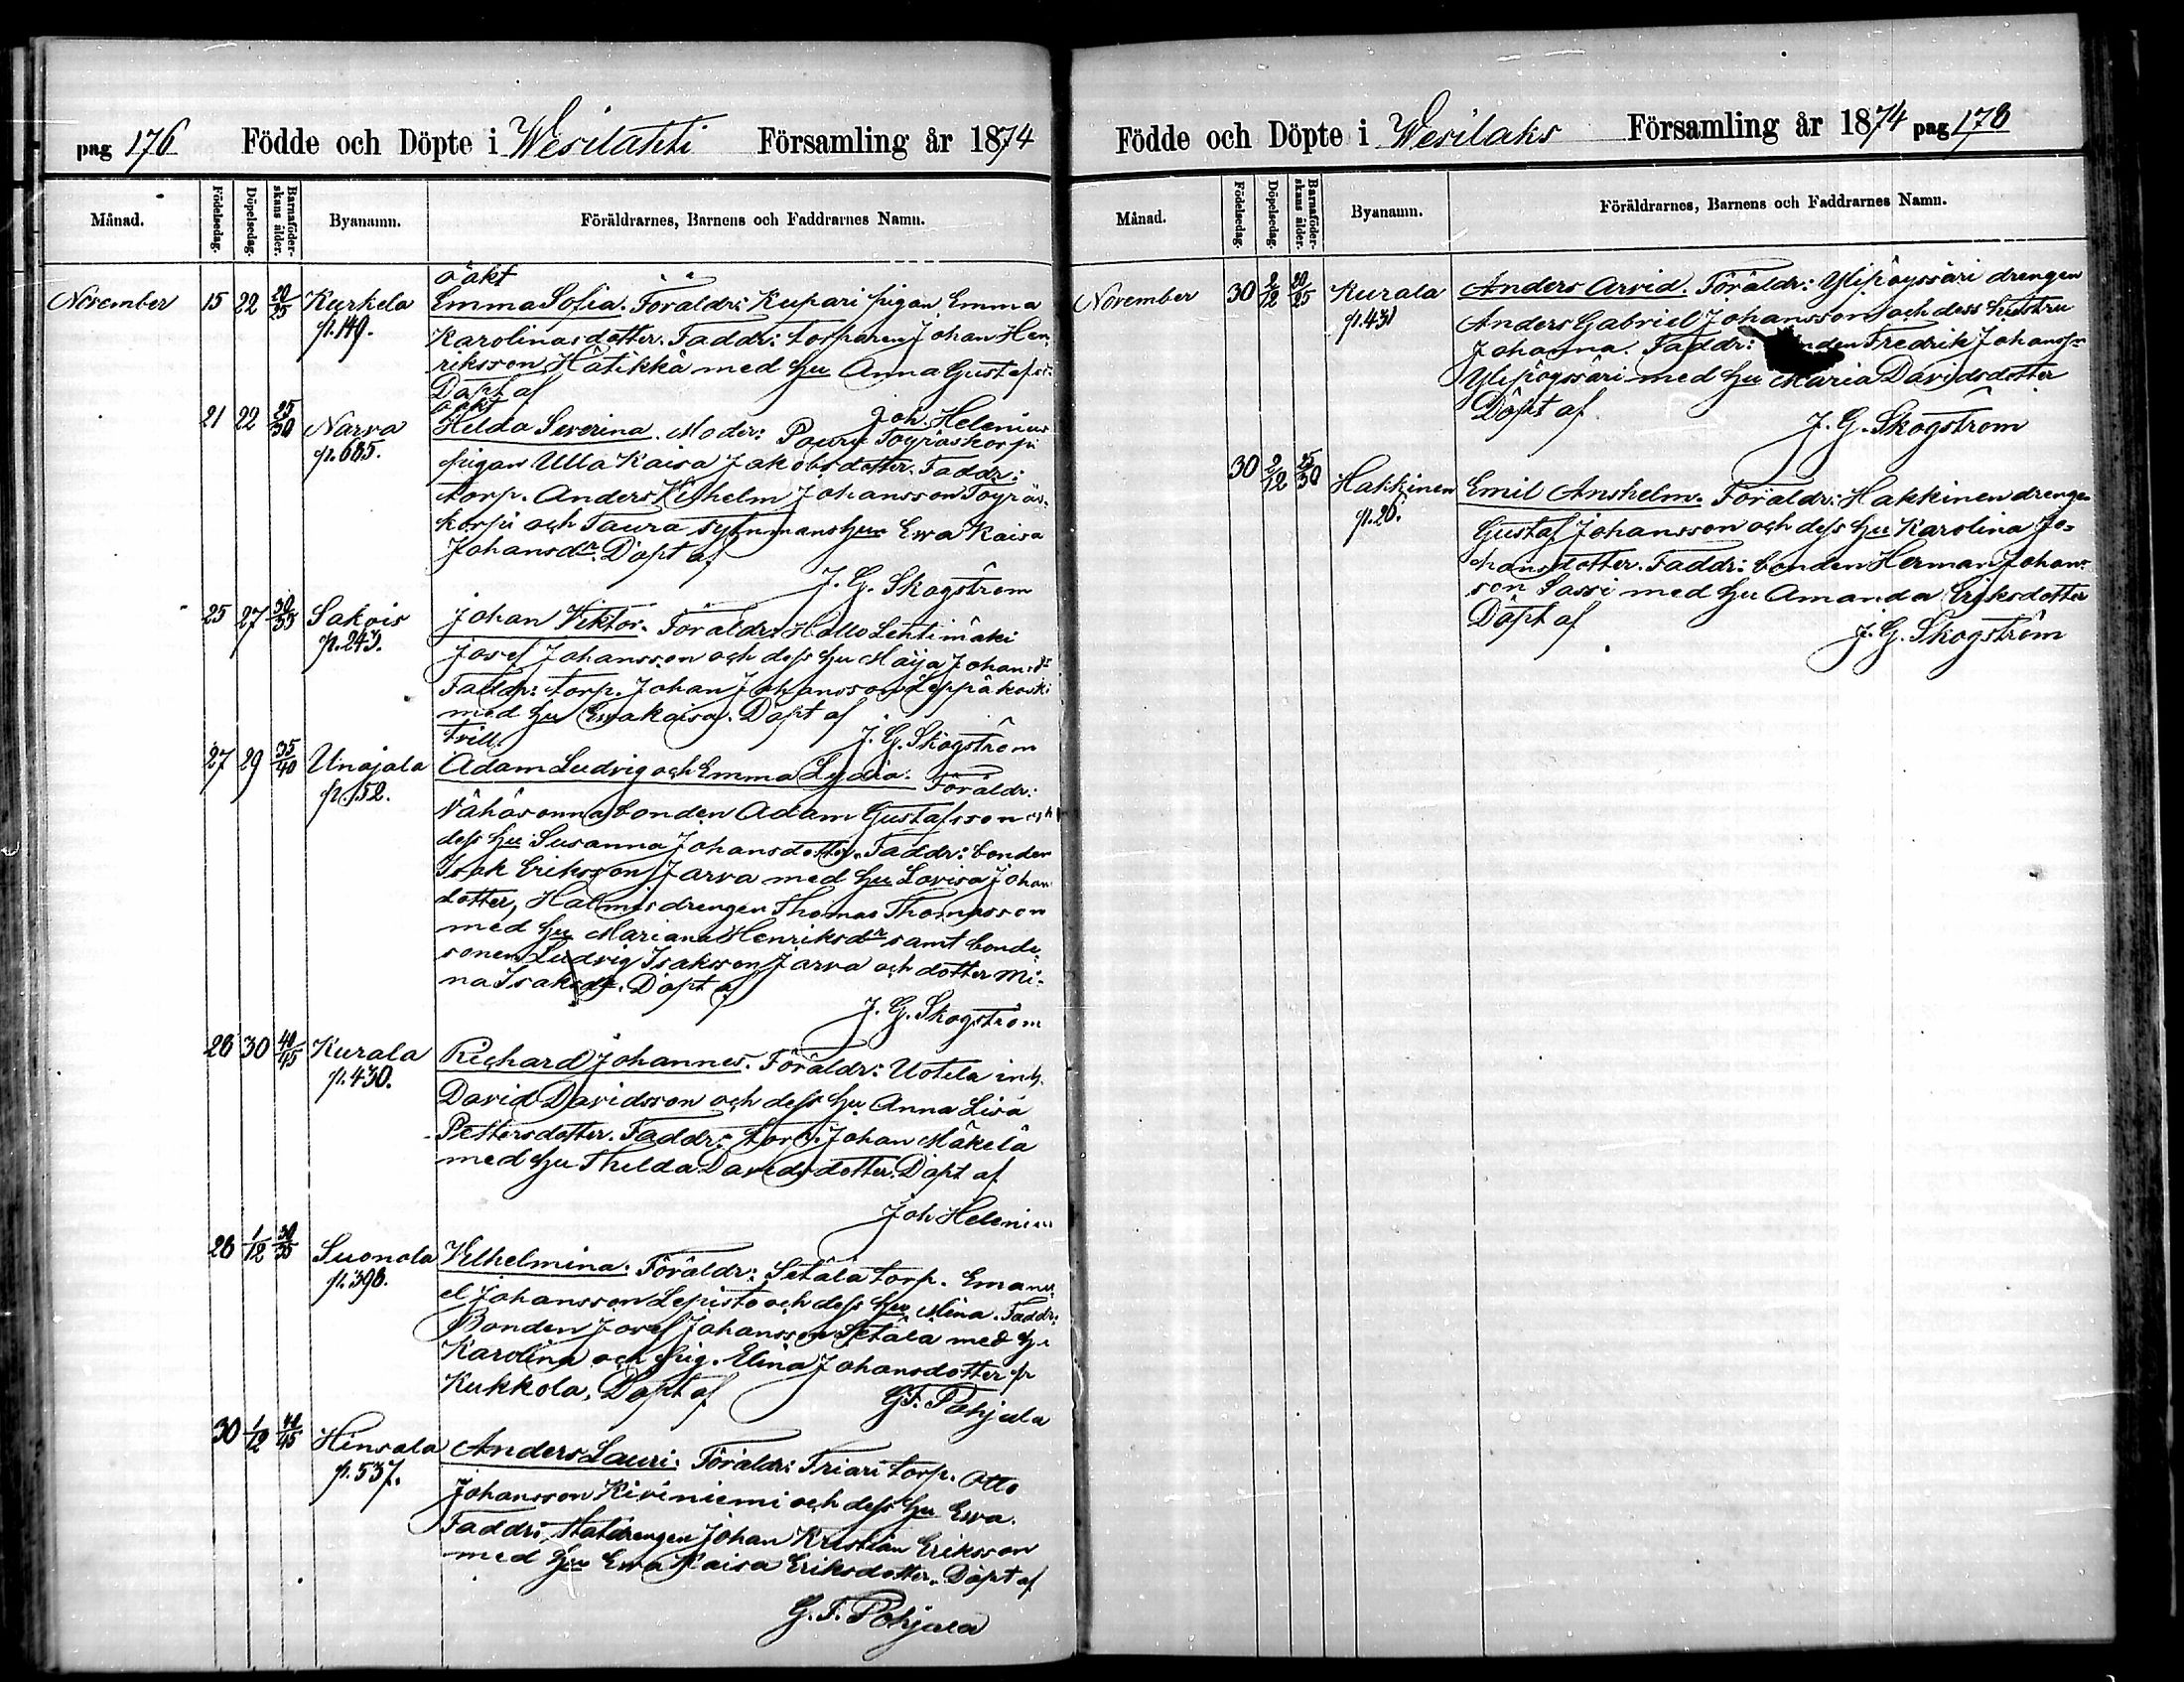 pag 176 Födde och Döpte i Wesilahti Församling år 1874
Månad. Födelsedag. Döpelsedag. Barnaföderskans ålder. Byanamn. Föräldrarnes, Barnens och Faddrarnes Namn.
oäkt
November 15 22 20/25 Kurkela Emma Sofia. Föräldr: Kupari pigan Emma
p. 149. Karolinasdotter. Faddr: torparen Johan Hen
riksson Hätikkä med hu Anna Gustafsd:r
Döpt af
Joh. Helenius
oäkt
21 22 25/30 Narva Helda Severina. Moder: Töyräskorpi
p. 665. pigan Ulla Kaisa Jakobsdotter. Faddr:
torp. Anders Vilhelm Johansson Töyräs
korpi och Taura sytnmans hu Ewa Kaisa
Johansdr. Döpt af
J. G. Skogström
25 27 30/35 Sakois Johan Viktor. Föräldr: Hallo Lehtimäki
p. 243. Josef Johansson och dess hu Maija Johansd:r
Faddr: torp. Johan Johansson Leppäkoski
med hu Ewa Kaisa. Döpt af
J. G. Skogström
tvill
27 29 35/40 Unajala Adam Ludvig och Emma Lydia. Föräldr:
p. 152. Vähäsonna bonden Adam Gustafsson och
dess hu Susanna Johansdotter. Faddr: bonden
Isak Eriksson Jarva med hu Lovisa Johan
dotter, Halmis drengen Thomas Thomasson
med hu Mariana Henriksdr samt bonde
sonen Ludvig Isaksson Jarva och dotter Mi-
na Isaksdr. Döpt af
J. G. Skogström
28 30 40/45 Kurala Richard Johannes. Föräldr: Uotela inh.
p. 430. David Davidsson och dess hu Anna Lisa
Pettersdotter. Faddr: torp. Johan Mäkelä
med hu Thilda Davidsdotter. Döpt af
Joh Helenius
28 1/12 30/35 Suonola Vilhelmina. Föräldr: Setälä torp. Emanu
p. 398. el Johansson Lepistö och dess hu Mina. Faddr:
Bonden Josef Johansson Setälä med hu
Karolina och pig. Elina Johansdotter fr
Kukkola. Döpt af
G. F. Pohjala
30 1/12 40/45 Hinsala Anders Lauri. Föräldr: Friari torp. Otto
p. 537. Johansson Kiviniemi och dess hu Ewa.
Faddr: Statdrengen Johan Kristian Eriksson
med hu Ewa Kaisa Eriksdotter. Döpt af
G. F. Pohjala
Födde och Döpte i Wesilaks Församling år 1874 pag 178
Månad. Födelsedag. Döpelsedag. Barnaföderskans ålder. Byanamn. Föräldrarnes, Barnens och Faddrarnes Namn.
November 30 2/12 20/25 Kurala Anders Arvid. Föräldr: Ylipöyssäri drengen
p. 431 Anders Gabriel Johansson och dess hustru
Johanna. Faddr: nden Fredrik Johanss:n
Ylipöyssäri med hu Maria Davidsdotter
Döpt af
J. G. Skogström
30 2/12 25/30 Hakkinen Emil Anshelm. Föräldr: Hakkinen drengen
p. 26. Gustaf Johansson och dess hu Karolina Jo-
hansdotter. Faddr: bonden Herman Johans-
son Sassi med hu Amanda Eriksdotter
Döpt af
J. G. Skogström